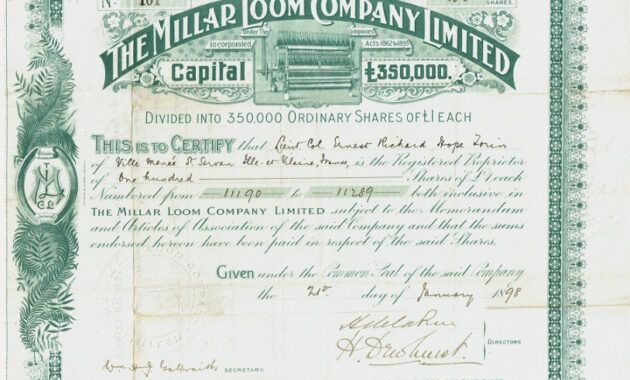 No. 101
SHARES.
THE MILLAR LOOM COMPANY LIMITED
Incorporated Under The Companies Acts 1862 to 1893
Capital £350,000.
DIVIDED INTO 350,000 ORDINARY SHARES OF £1 EACH
THIS IS TO CERTIFY that Lieut Col. Ernest Richard Hope
of Ville Menée St Servan Ille-et-Vilaine, France, is the Registered Proprietor
of One hundred Shares of £1 each
Numbered from 11190 to 11289 both inclusive in
THE MILLAR LOOM COMPANY LIMITED subject to the Memorandum
and Articles of Association of the said Company and that the sums
endorsed hereon have been paid in respect of the said Shares.
Given under the Common Seal of the said Company
the 21st day of January 1898
H. Dewhurst.
DIRECTORS
Galbraith SECRETARY.